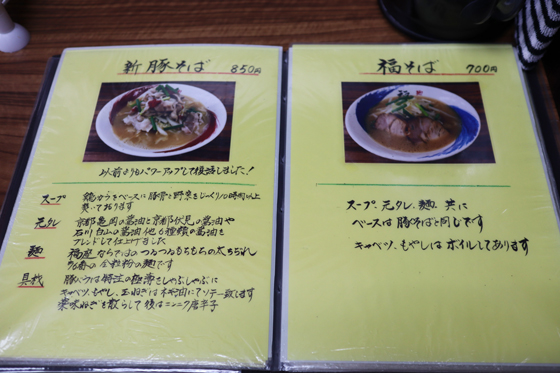 新 豚そば 850円
以前よりもパワーアップして復活しました!
スープ 鶏ガラをベースに豚骨と野菜をじっくり10時間以上
炊いております
元タレ 京都亀岡の醤油と京都伏見の醤油や
石川白山の醤油他6種類の醤油を
ブレンドして仕上げました
麺 福座ならではのつるつるもちもちの太ちぢれ
の全粒粉の麺です
具材 豚バラは特注の極薄をしゃぶしゃぶに
キャベツ、もやし、玉ねぎはネギ油にてソテー致します
薬味ねぎを散らして後はニンニク唐辛子
福そば 700円
スープ、元タレ、麺、共に
ベースは豚そばと同じです
キャベツ、もやしはボイルしてあります